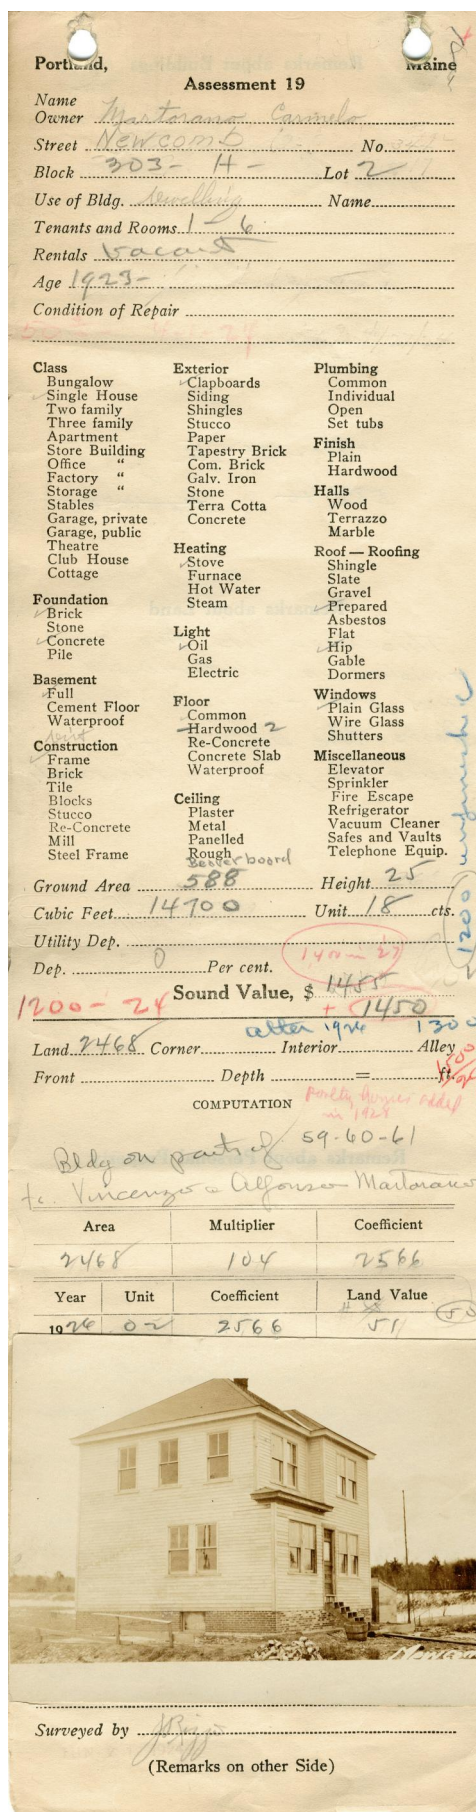 Portland, Maine
Assessment 19
Name
Owner Martorano Carmelo
Street Newcomb No.
Block 303- H- Lot 2
Use of Bldg. dwelling Name
Tenants and Rooms 1 - 6
Rentals vacant
Age 1923-
Condition of Repair
Class
Bungalow
Single House
Two family
Three family
Apartment
Store Building
Office "
Factory "
Storage "
Stables
Garage, private
Garage, public
Theatre
Club House
Cottage
Foundation
Brick
Stone
Concrete
Pile
Basement
Full
Cement Floor
Waterproof
Construction
Frame
Brick
Tile
Blocks
Stucco
Re-Concrete
Mill
Steel Frame
Exterior
Clapboards
Siding
Shingles
Stucco
Paper
Tapestry Brick
Com. Brick
Galv. Iron
Stone
Terra Cotta
Concrete
Heating
Stove
Furnace
Hot Water
Steam
Light
Oil
Gas
Electric
Floor
Common
Hardwood 2
Re-Concrete
Concrete Slab
Waterproof
Ceiling
Plaster
Metal
Panelled
Rough
Beaver board
Plumbing
Common
Individual
Open
Set tubs
Finish
Plain
Hardwood
Halls
Wood
Terrazzo
Marble
Roof — Roofing
Shingle
Slate
Gravel
Prepared
Asbestos
Flat
Hip
Gable
Dormers
Windows
Plain Glass
Wire Glass
Shutters
Miscellaneous
Elevator
Sprinkler
Fire Escape
Refrigerator
Vacuum Cleaner
Safes and Vaults
Telephone Equip.
1200 unfinished
Ground Area 588 Height 25
Cubic Feet 14700 Unit 18 cts.
Utility Dep.
Dep. 0 Per cent. 1400 - 27
Sound Value, $ 1455
1200 - 24 + 1450
after 1926 1300
Land 2468 Corner Interior Alley
Front Depth = ft.
1500
COMPUTATION poultry houses added
in 1928
Bldg on parts of 59-60-61
to Vincenzo & Alfonso Martorano
Area Multiplier Coefficient
2468 104 2566
Year Unit Coefficient Land Value
1926 02 2566 51 50
Surveyed by
(Remarks on other Side)